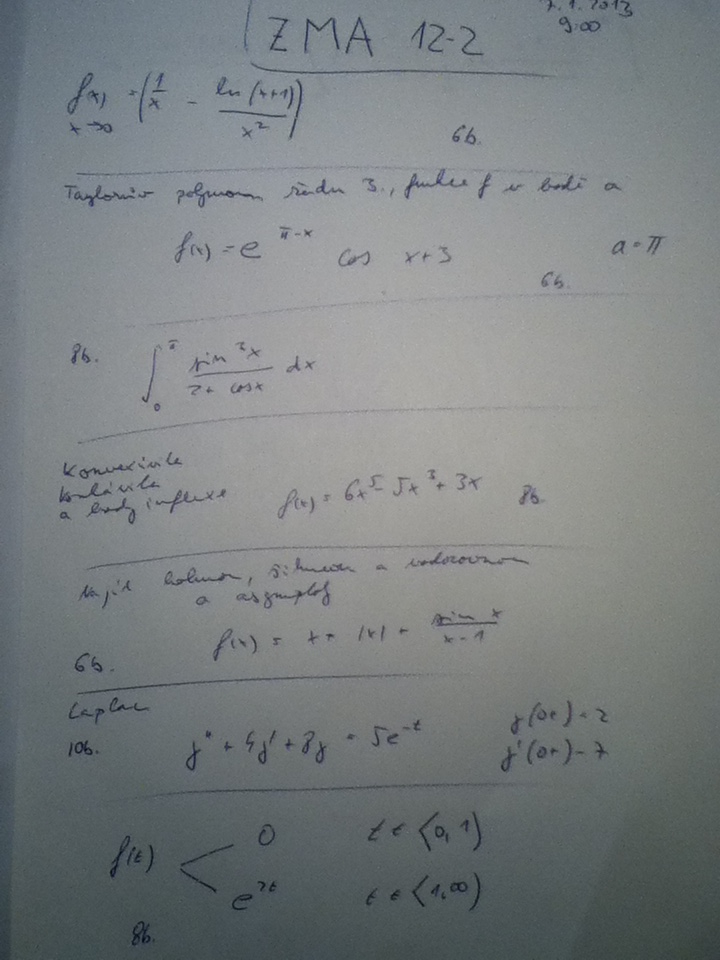 7.1.2013
9:00
ZMA 12-2
f(x) = (1/x - ln(x+1)/x²)
x→0
6b.
Taylorův polynom řádu 3., funkce f v bodě a
f(x) = e^(π-x) cos x+3 a=π
6b.
8b. ∫₀^π sin³x/(2+cosx) dx
Konvexivita
konkávita
a body inflexe
f(x) = 6x⁵-5x³+3x 8b.
Najít kolmou, šikmou a vodorovnou
a asymptoty
f(x) = x + |x| + sin x/(x-1)
6b.
Laplac
10b. y'' + 4y' + 8y = 5e^(-t)
y(0+)=2
y'(0+)=7
f(t) < 0 t∈⟨0,1)
e^(2t) t∈⟨1,∞)
8b.